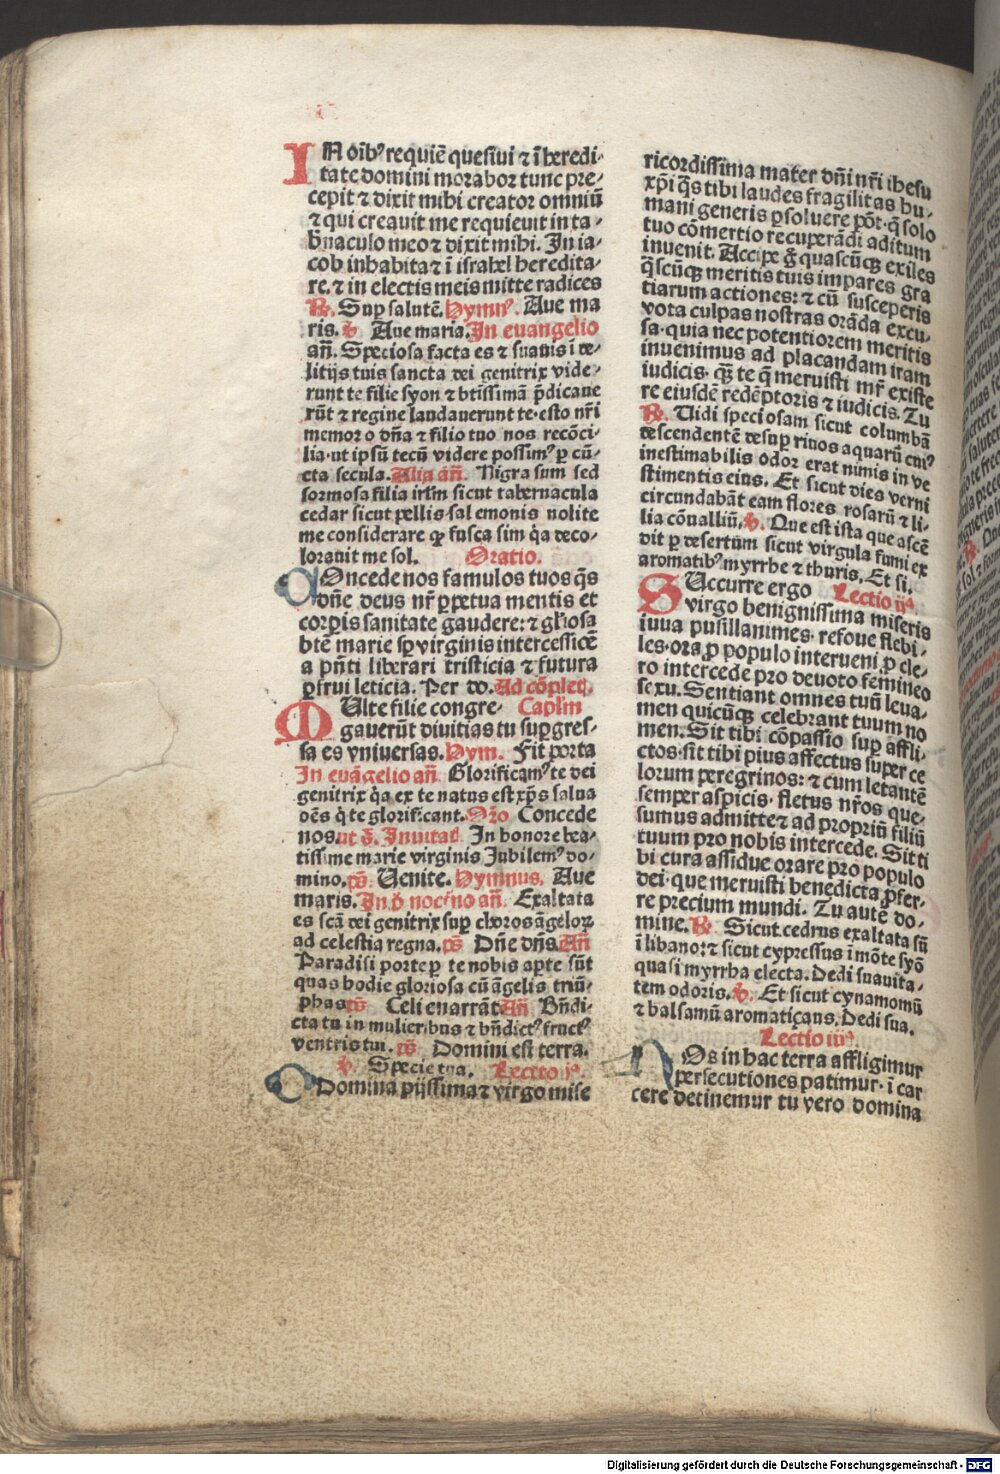 IN oīb⁹ requiē quesiui ⁊ ī heredi-
tate domini morabor tunc pre-
cepit ⁊ dixit mihi creator omniū
⁊ qui creauit me requieuit in ta-
b̄naculo meo ⁊ dixit mihi. In ia-
cob inhabita ⁊ ī israhel heredita-
re. ⁊ in electis meis mitte radices
℟. Sup salutē. Hymn⁹. Aue ma
ris. ℣ Aue maria. In euangelio
añ. Speciosa facta es ⁊ suauis ī de-
litijs tuis sancta dei genitrix vide-
runt te filie syon ⁊ btīssimā p̄dicaue
rūt ⁊ regine laudauerunt te. esto nr̄i
memor o dn̄a ⁊ filio tuo nos recōci-
lia. ut ipsū tecū videre possim⁹ ꝑ cū-
cta secula. Alia añ. Nigra sum sed
formosa filia irlm̄ sicut tabernacula
cedar sicut pellis salemonis nolite
me considerare ꝙ fusca sim q̄a deco-
lorauit me sol. Oratio.
COncede nos famulos tuos q̄s
dn̄e deus nr̄ ꝑpetua mentis et
corꝑis sanitate gaudere: ⁊ gl̄iosa
btē marie sp̄ virginis intercessiōe
a pn̄ti liberari tristicia ⁊ futura
ꝑfrui leticia. Per do. Ad cōplet.
MUlte filie congre- Caplm̄
gauerūt diuitias tu suꝑgres-
sa es vniuersas. Hym. Fit porta
In euāgelio añ. Glorificam⁹ te dei
genitrix q̄a ex te natus est xp̄s salua
oēs q̄ te glorificant. Or̄o Concede
nos. ut s̄. Inuitat̄. In honore bea-
tissime marie virginis Jubilem⁹ do-
mino. p̄s. Uenite. Hymnus. Aue
maris. In p̄ nocr̄no añ. Exaltata
es scā dei genitrix suꝑ choros āgeloꝝ
ad celestia regna. p̄s Dn̄e dn̄s. Añ
Paradisi porte ꝑ te nobis aꝑte sūt
quas hodie gloriosa cū āgelis triū-
phas p̄s Celi enarrāt. Añ Bn̄di-
cta tu in mulieribus ⁊ bn̄dict⁹ fruct⁹
ventris tui. p̄s. Domini est terra.
℣. Specie tua. Lectio jª.
O Domina pijssima ⁊ virgo mise
ricordissima mater dn̄i nr̄i ihesu
xp̄i q̄s tibi laudes fragilitas hu-
mani generis ꝑsoluere pōt. q̄ solo
tuo cōmertio recuꝑādi aditum
inuenit. Accipe g̃ quascūqꝫ exiles
q̄scūqꝫ meritis tuis impares gra
tiarum actiones: ⁊ cū susceperis
vota culpas nostras orāda excu-
sa. quia nec potentiorem meritis
inuenimus ad placandam iram
iudicis. qꝫ te q̄ meruisti mr̄ existe
re eiusdē redēptoris ⁊ iudicis. Tu
℟. Uidi speciosam sicut columbā
descendentē desuꝑ riuos aquarū cui⁹
inestimabilis odor erat nimis in ve
stimentis eius. Et sicut dies verni
circundabāt eam flores rosarū ⁊ li-
lia cōualliū. ℣. Que est ista que ascē
dit ꝑ desertum sicut virgula fumi ex
aromatib⁹ myrrhe ⁊ thuris. Et si.
SUccurre ergo Lectio ijª
virgo benignissima miseris
iuua pusillanimes. refoue flebi-
les. ora ꝓ populo interueni ꝓ cle-
ro intercede pro deuoto femineo
sexu. Sentiant omnes tuū leua-
men quicūqꝫ celebrant tuum no
men. Sit tibi cōpassio suꝑ affli-
ctos. sit tibi pius affectus super ce
lorum peregrinos: ⁊ cum letantē
semper aspicis. fletus nr̄os que-
sumus admitte ⁊ ad propriū filiū
tuum pro nobis intercede. Sit ti
bi cura assidue orare pro populo
dei. que meruisti benedicta ꝓfer-
re precium mundi. Tu autē do-
mine. ℟. Sicut cedrus exaltata sū
ī libano: ⁊ sicut cypressus ī mōte syō
quasi myrrha electa. Dedi suauita-
tem odoris. ℣. Et sicut cynamomū
⁊ balsamū aromatiçans. Dedi sua.
Lectio iijª.
NOs in hac terra affligimur
persecutiones patimur. ī car
cere detinemur tu vero domina
Digitalisierung gefördert durch die Deutsche Forschungsgemeinschaft - DFG